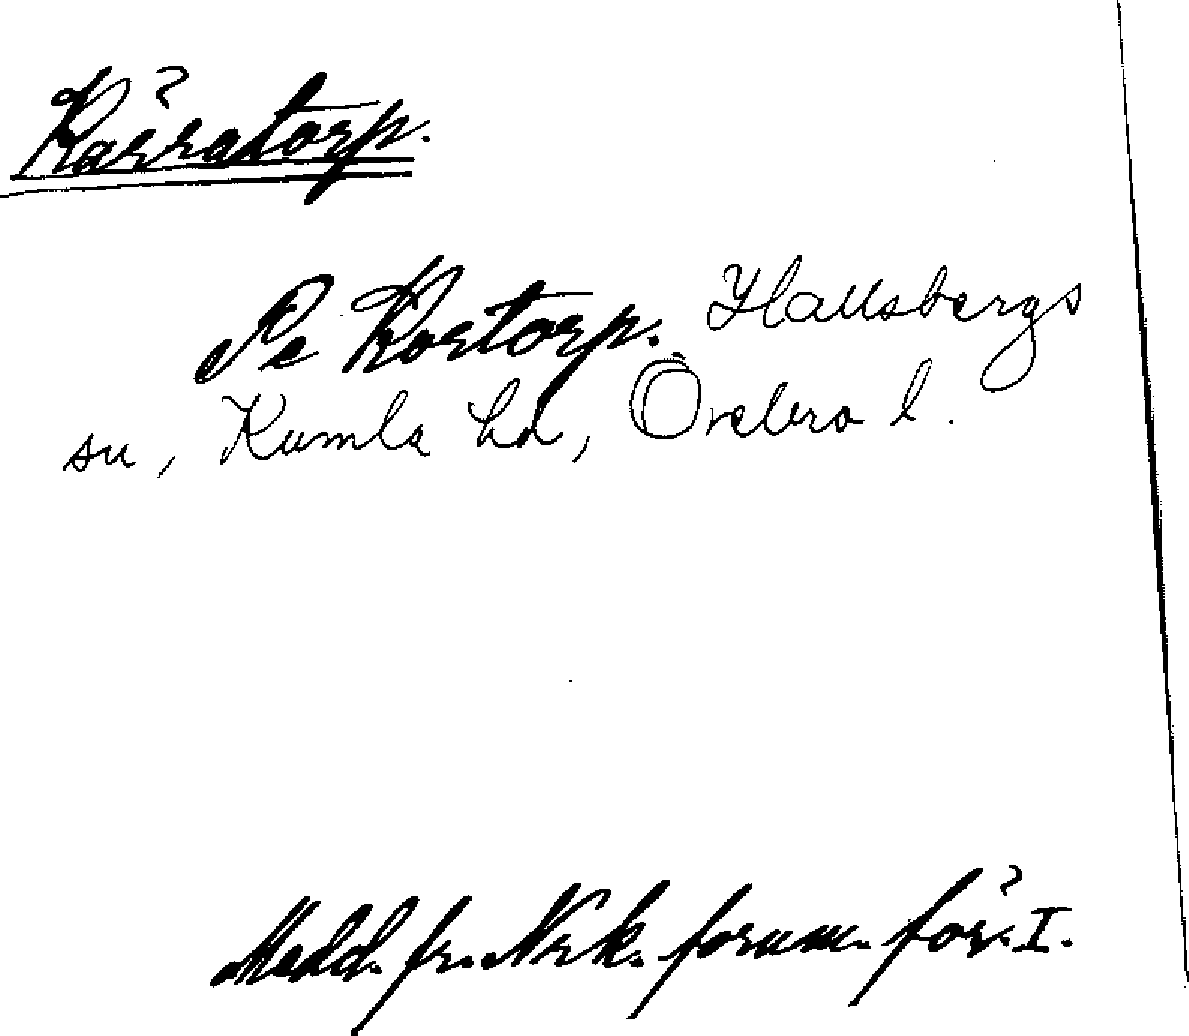 Kärratorp.
Pe Kortorp. Hallsbergs
sn, Kumla hd, Örebro l.
Medd. fr. Nrk. fornm. för. I.